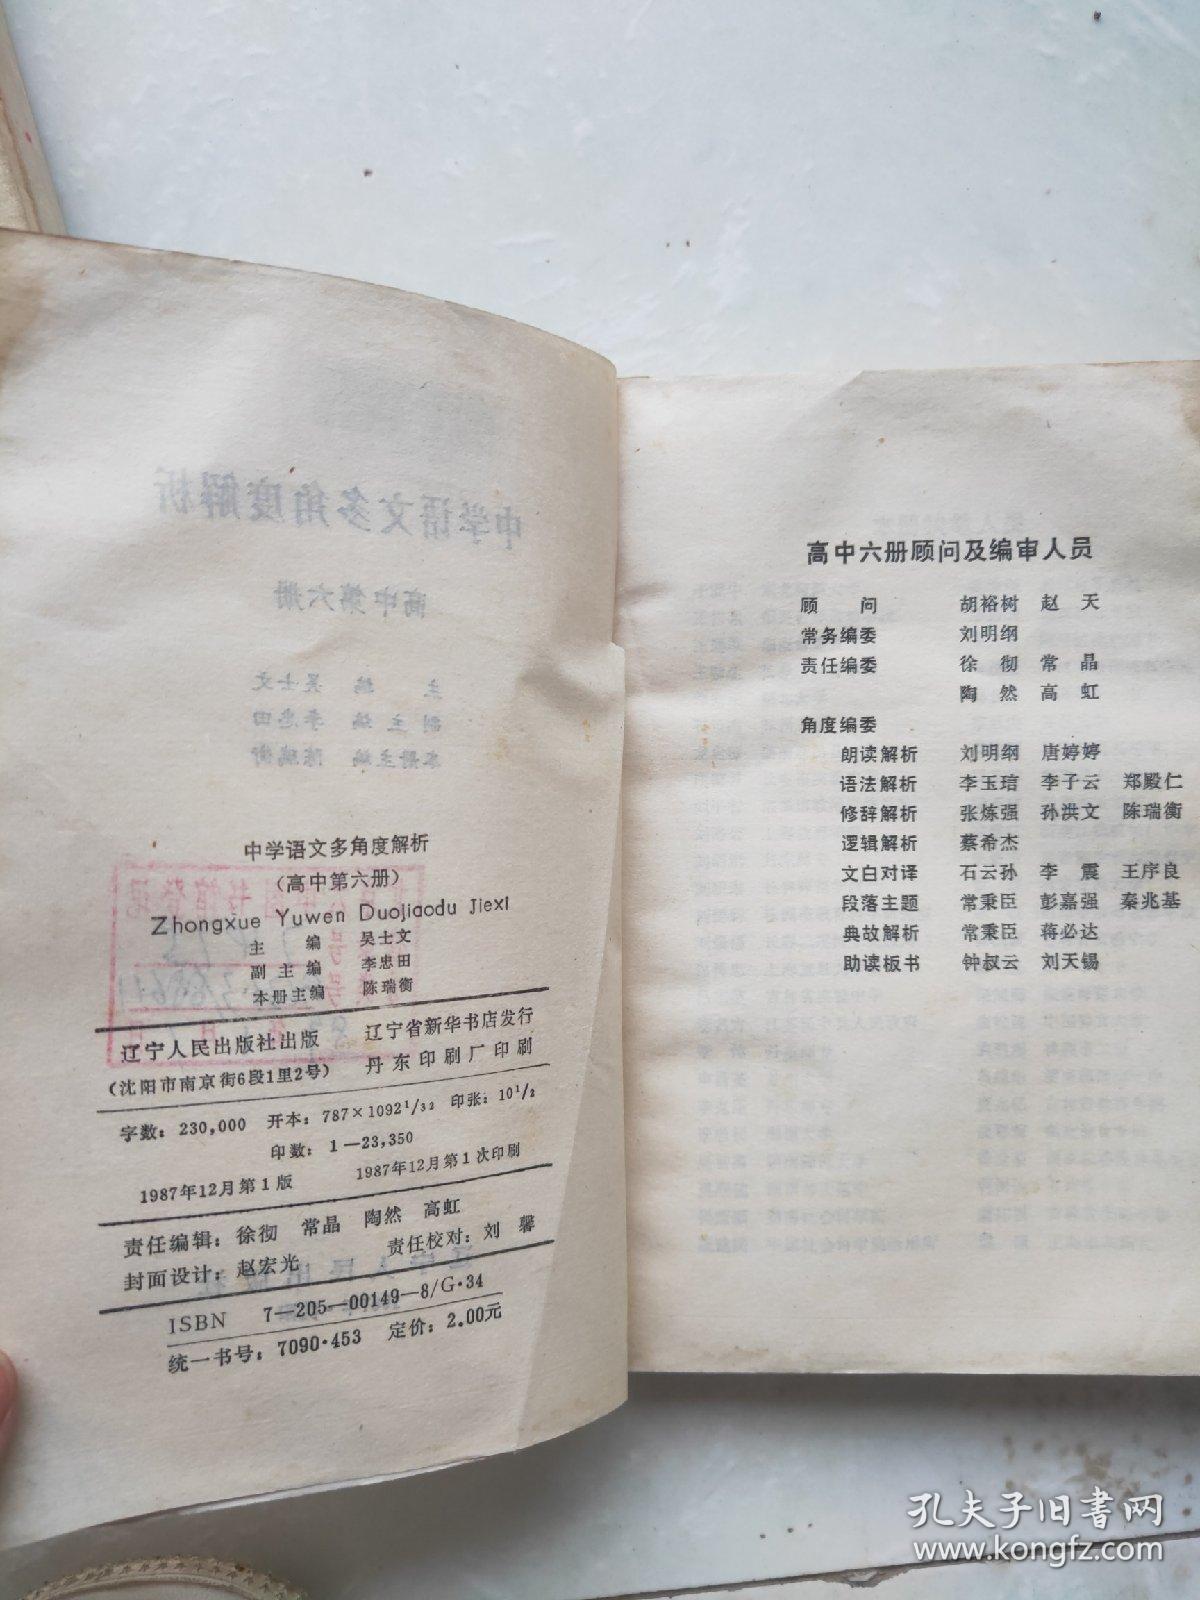 中学语文多角度解析
(高中第六册)
Zhongxue Yuwen Duojiaodu Jiexi
主 编 吴士文
副主编 李忠田
本册主编 陈瑞衡
辽宁人民出版社出版 辽宁省新华书店发行
(沈阳市南京街6段1里2号) 丹东印刷厂印刷
字数:230,000 开本:787×1092 1/32 印张:10 1/2
印数:1—23,350
1987年12月第1版 1987年12月第1次印刷
责任编辑:徐彻 常晶 陶然 高虹
封面设计:赵宏光 责任校对:刘 馨
ISBN 7—205—00149—8/G·34
统一书号:7090·453 定价:2.00元
高中六册顾问及编审人员
顾 问 胡裕树 赵 天
常务编委 刘明纲
责任编委 徐 彻 常 晶
陶 然 高 虹
角度编委
朗读解析 刘明纲 唐婷婷
语法解析 李玉琂 李子云 郑殿仁
修辞解析 张炼强 孙洪文 陈瑞衡
逻辑解析 蔡希杰
文白对译 石云孙 李 震 王序良
段落主题 常秉臣 彭嘉强 秦兆基
典故解析 常秉臣 蒋必达
助读板书 钟叔云 刘天锡
孔夫子旧书网
www.kongfz.com